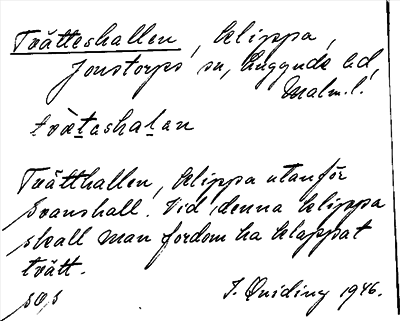 Tvätteshallen, klippa,
Jonstorps sn, Luggude hd
Malm. l.
tvätashalan
Tvätthallen, klippa utanför
Svanshall. Vid denna klippa
skall man fordom ha klappat
tvätt.
I. Quiding 1946.